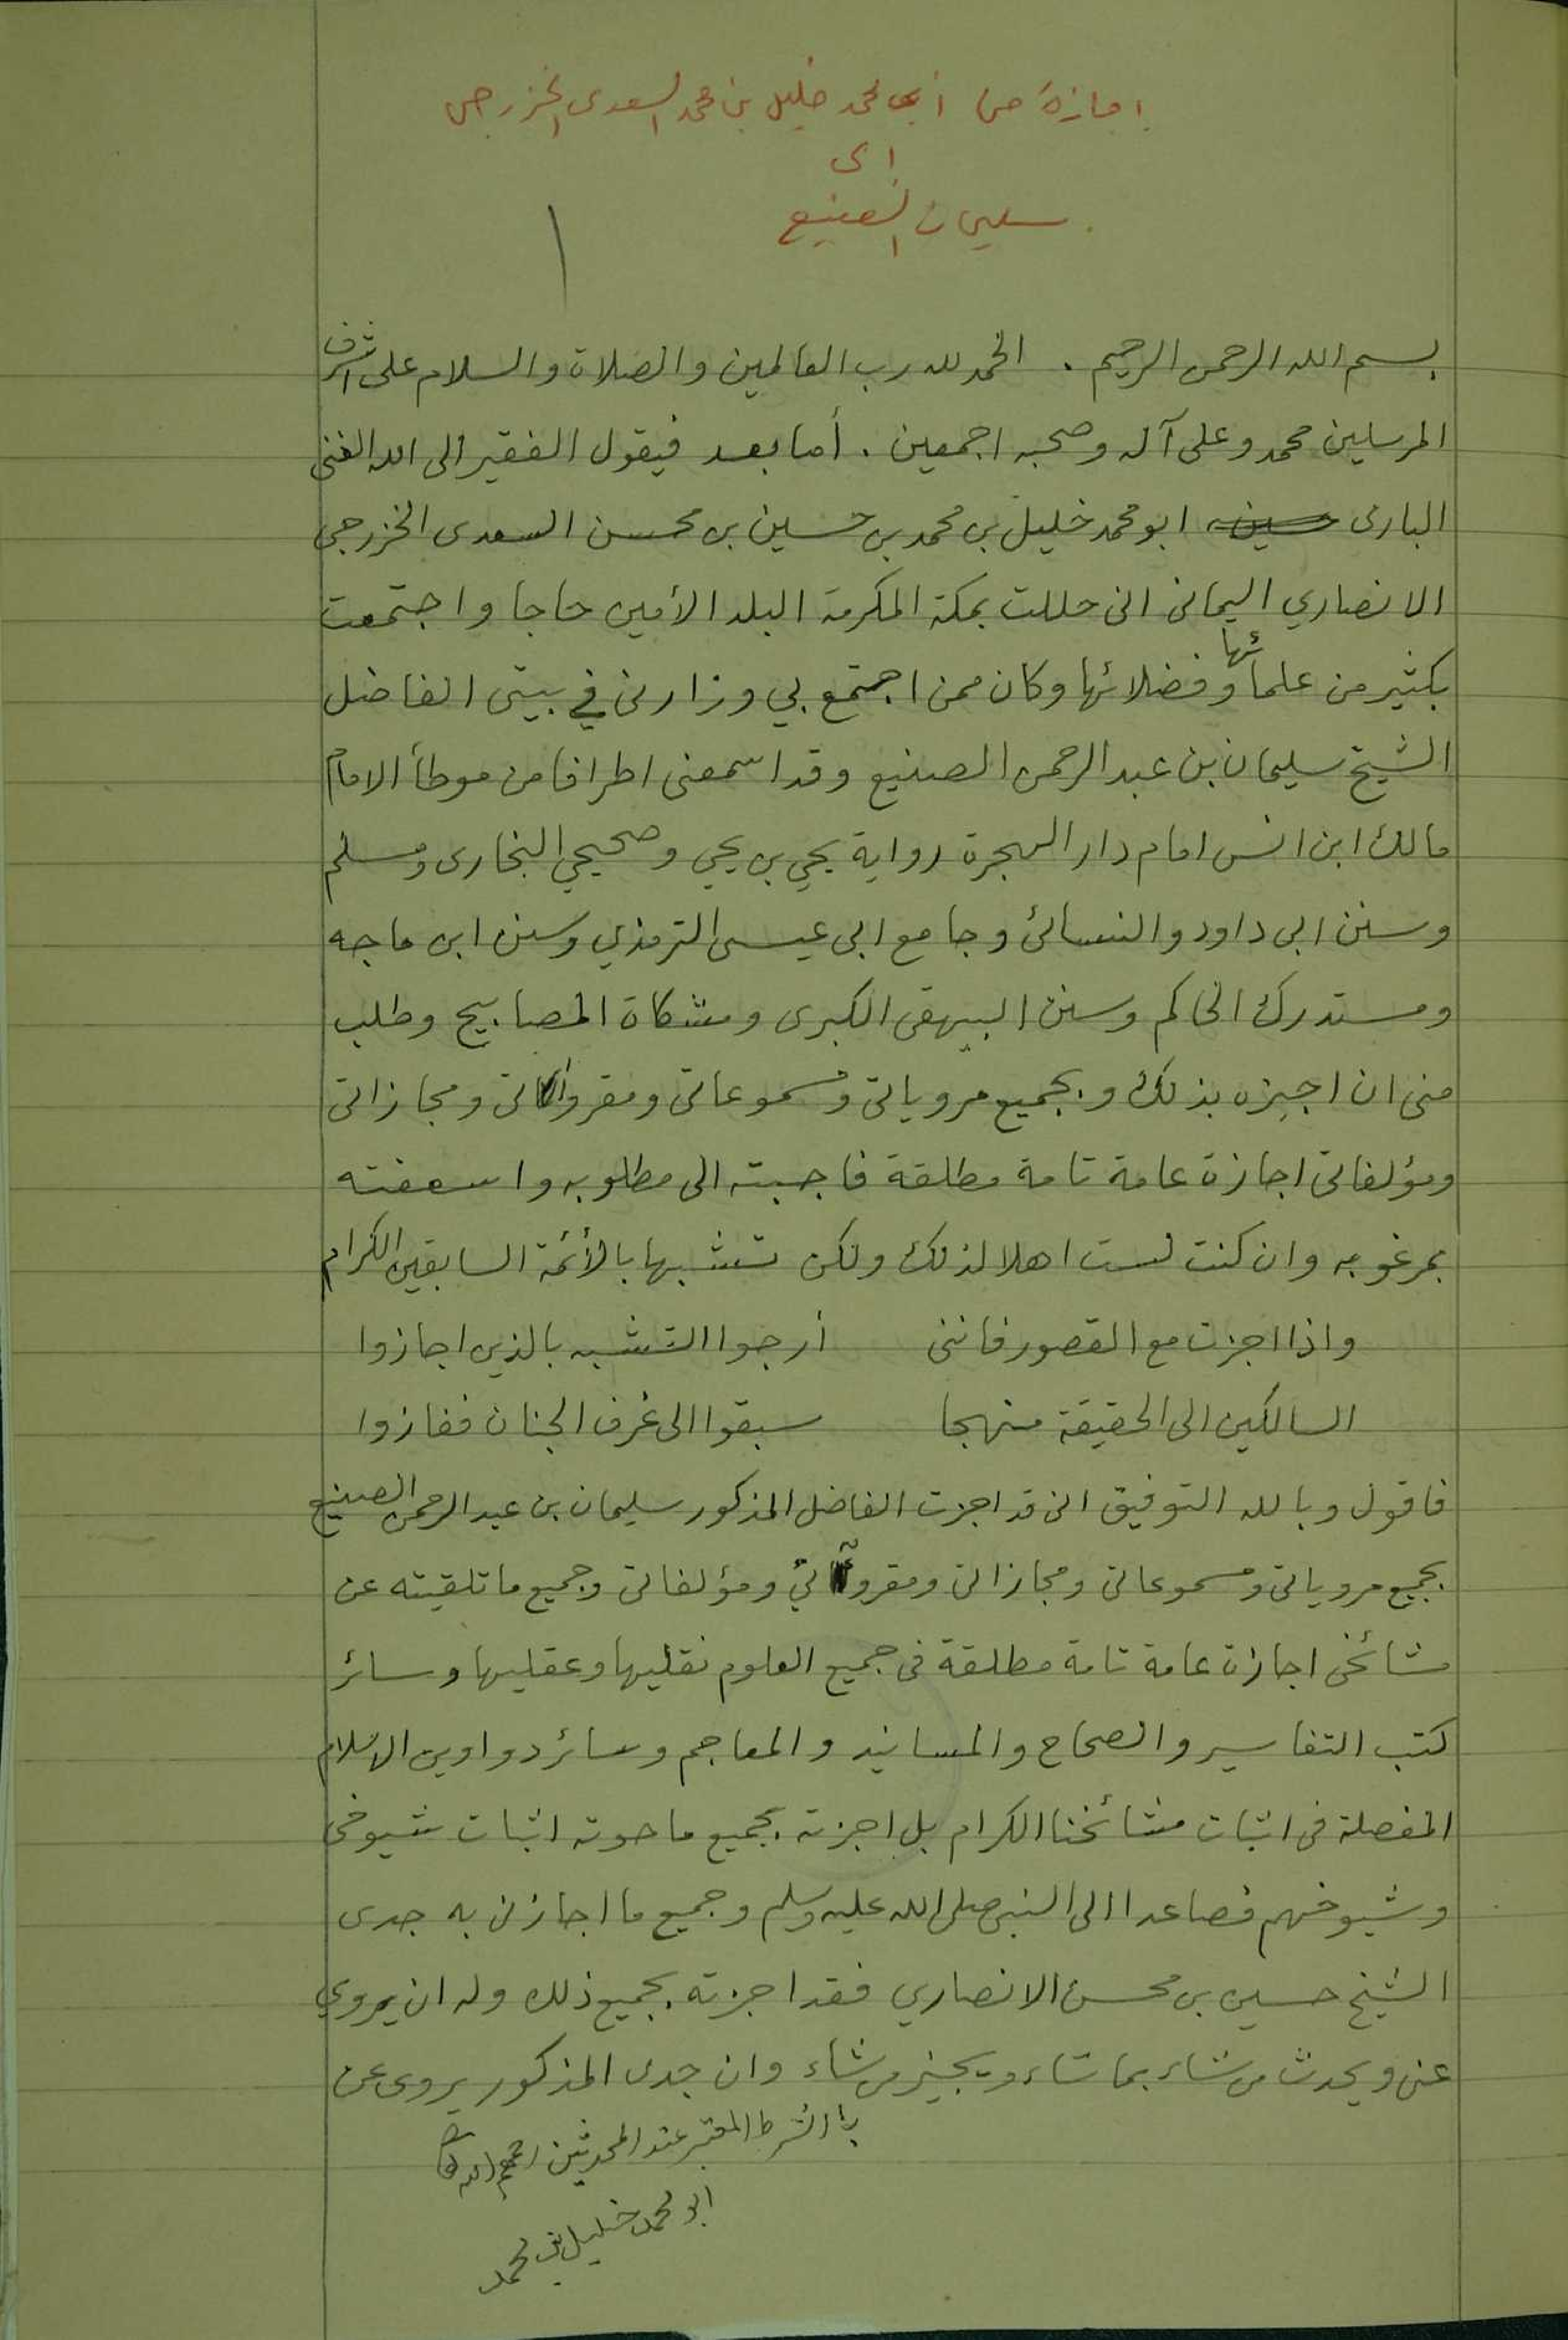 اجازة من أبي محمد خليل بن محمد السعدى الخزرجى
الى
سليمان الصنيع
١
بسم الله الرحمن الرحيم . الحمد لله رب العالمين والصلاة والسلام على اشرف
المرسلين محمد وعلى آله وصحبه اجمعين . أما بعد فيقول الفقير الى الله الغنى
البارى حسين ابو محمد خليل بن محمد بن حسين بن محسن السعدى الخزرجى
الانصاري اليمانى انى حللت بمكة المكرمة البلد الأمين حاجا واجتمعت
بكثير من علمائها وفضلائها وكان ممن اجتمع بي وزارنى في بيتى الفاضل
الشيخ سليمان بن عبد الرحمن الصنيع وقد اسمعنى اطرافا من موطأ الامام
مالك ابن انس امام دار الهجرة رواية يحي بن يحي وصحيحي البخارى ومسلم
وسنن ابى داود والنسائى وجامع ابى عيسى الترمذي وسنن ابن ماجه
ومستدرك الحاكم وسنن البيهقى الكبرى ومشكاة المصابيح وطلب
منى ان اجيزه بذلك وبجميع مروياتى ومسموعاتى ومقروآتى ومجازاتى
ومؤلفاتى اجازة عامة تامة مطلقة فاجبته الى مطلوبه واسعفته
بمرغوبه وان كنت لست اهلا لذلك ولكن تشبها بالأئمة السابقين الكرام
واذا اجزت مع القصور فاننى أرجوا التشبه بالذين اجازوا
السالكين الى الحقيقة منهجا سبقوا الى غرف الجنان ففازوا
فاقول وبالله التوفيق انى قد اجزت الفاضل المذكور سليمان بن عبد الرحمن الصنيع
بجميع مروياتى ومسموعاتى ومجازاتى ومقروآتي ومؤلفاتى وجميع ما تلقيته عن
مشائخى اجازة عامة تامة مطلقة فى جميع العلوم نقليها وعقليها وسائر
كتب التفاسير والصحاح والمسانيد والمعاجم وسائر دواوين الاسلام
المفصلة فى اثبات مشائخنا الكرام بل اجزته بجميع ما حوته اثبات شيوخى
وشيوخهم فصاعدا الى النبى صلى الله عليه وسلم وجميع ما اجازنى به جدى
الشيخ حسين بن محسن الانصاري فقد اجزته بجميع ذلك وله ان يروي
عنى ويحدث من شاء بما شاء ويجيز من شاء وان جدى المذكور يروى عن
بالشرط المعتبر عند المحدثين رحمهم الله
ابو محمد خليل بن محمد